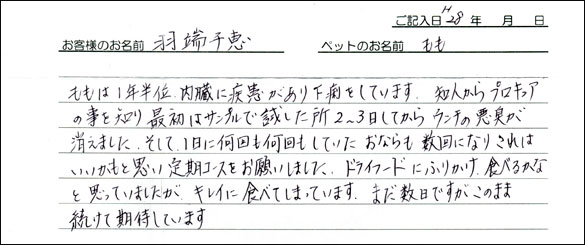 ご記入日 H28年 月 日
お客様のお名前 羽端千恵 ペットのお名前 もも
ももは1年半位、内臓に疾患があり下痢をしています。知人からプロキュア
の事を知り最初はサンプルで試した所2、3日してからウンチの悪臭が
消えました、そして、1日に何回も何回もしていたおならも数回になりこれは
いいかもと思い定期コースをお願いしました、ドライフードにふりかけ、食べるかな
と思っていましたが、キレイに食べてしまっています。まだ数日ですがこのまま
続けて期待しています